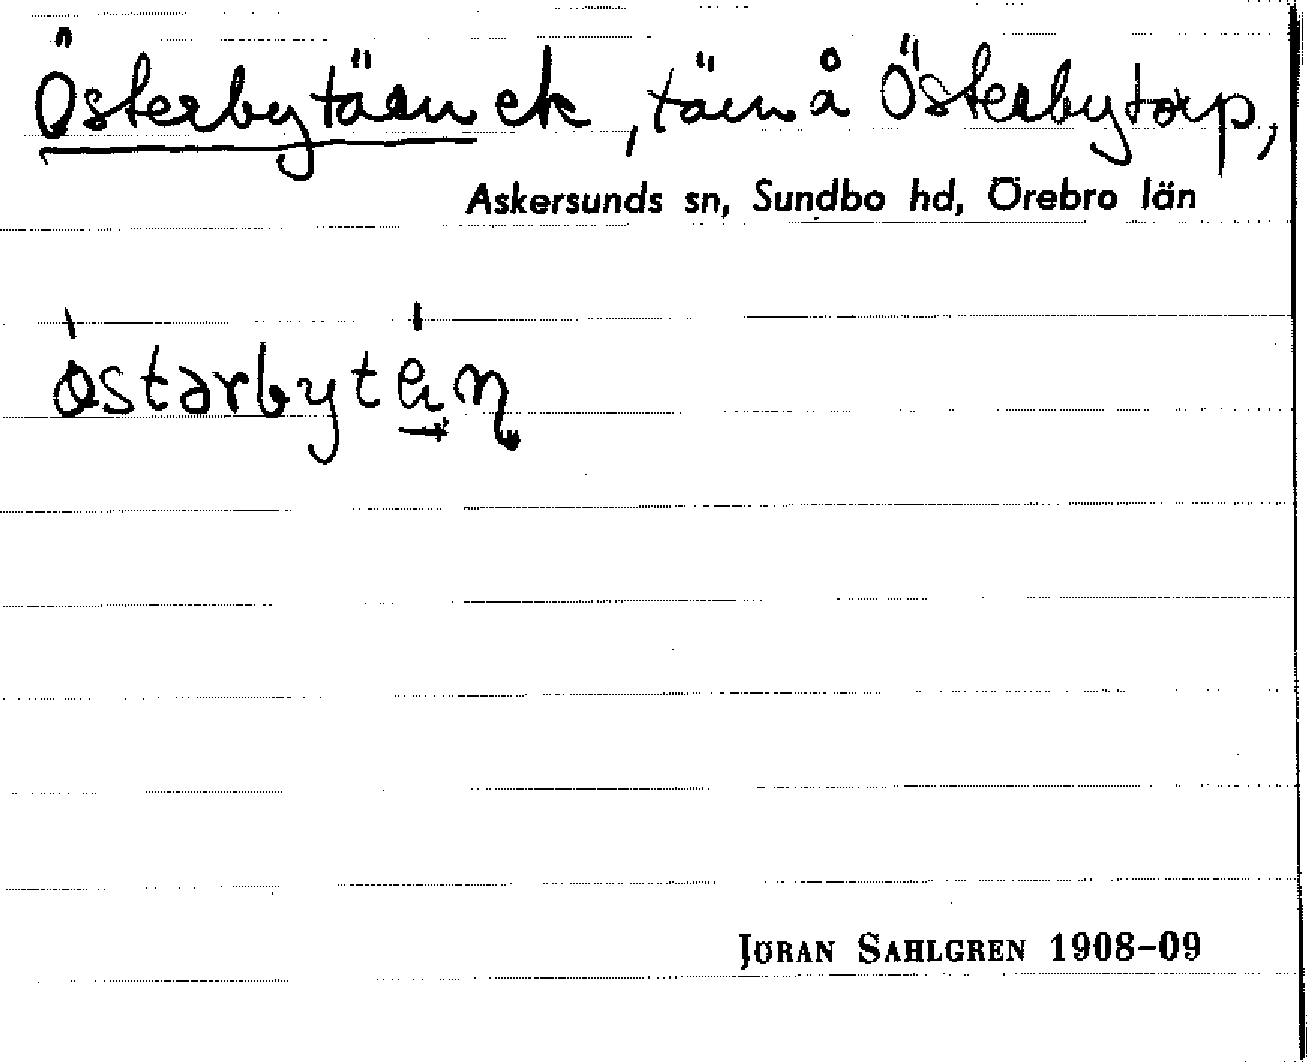 Österbytärn ek, tärn å Österbytorp,
Askersunds sn, Sundbo hd, Örebro län
JÖRAN SAHLGREN 1908–09